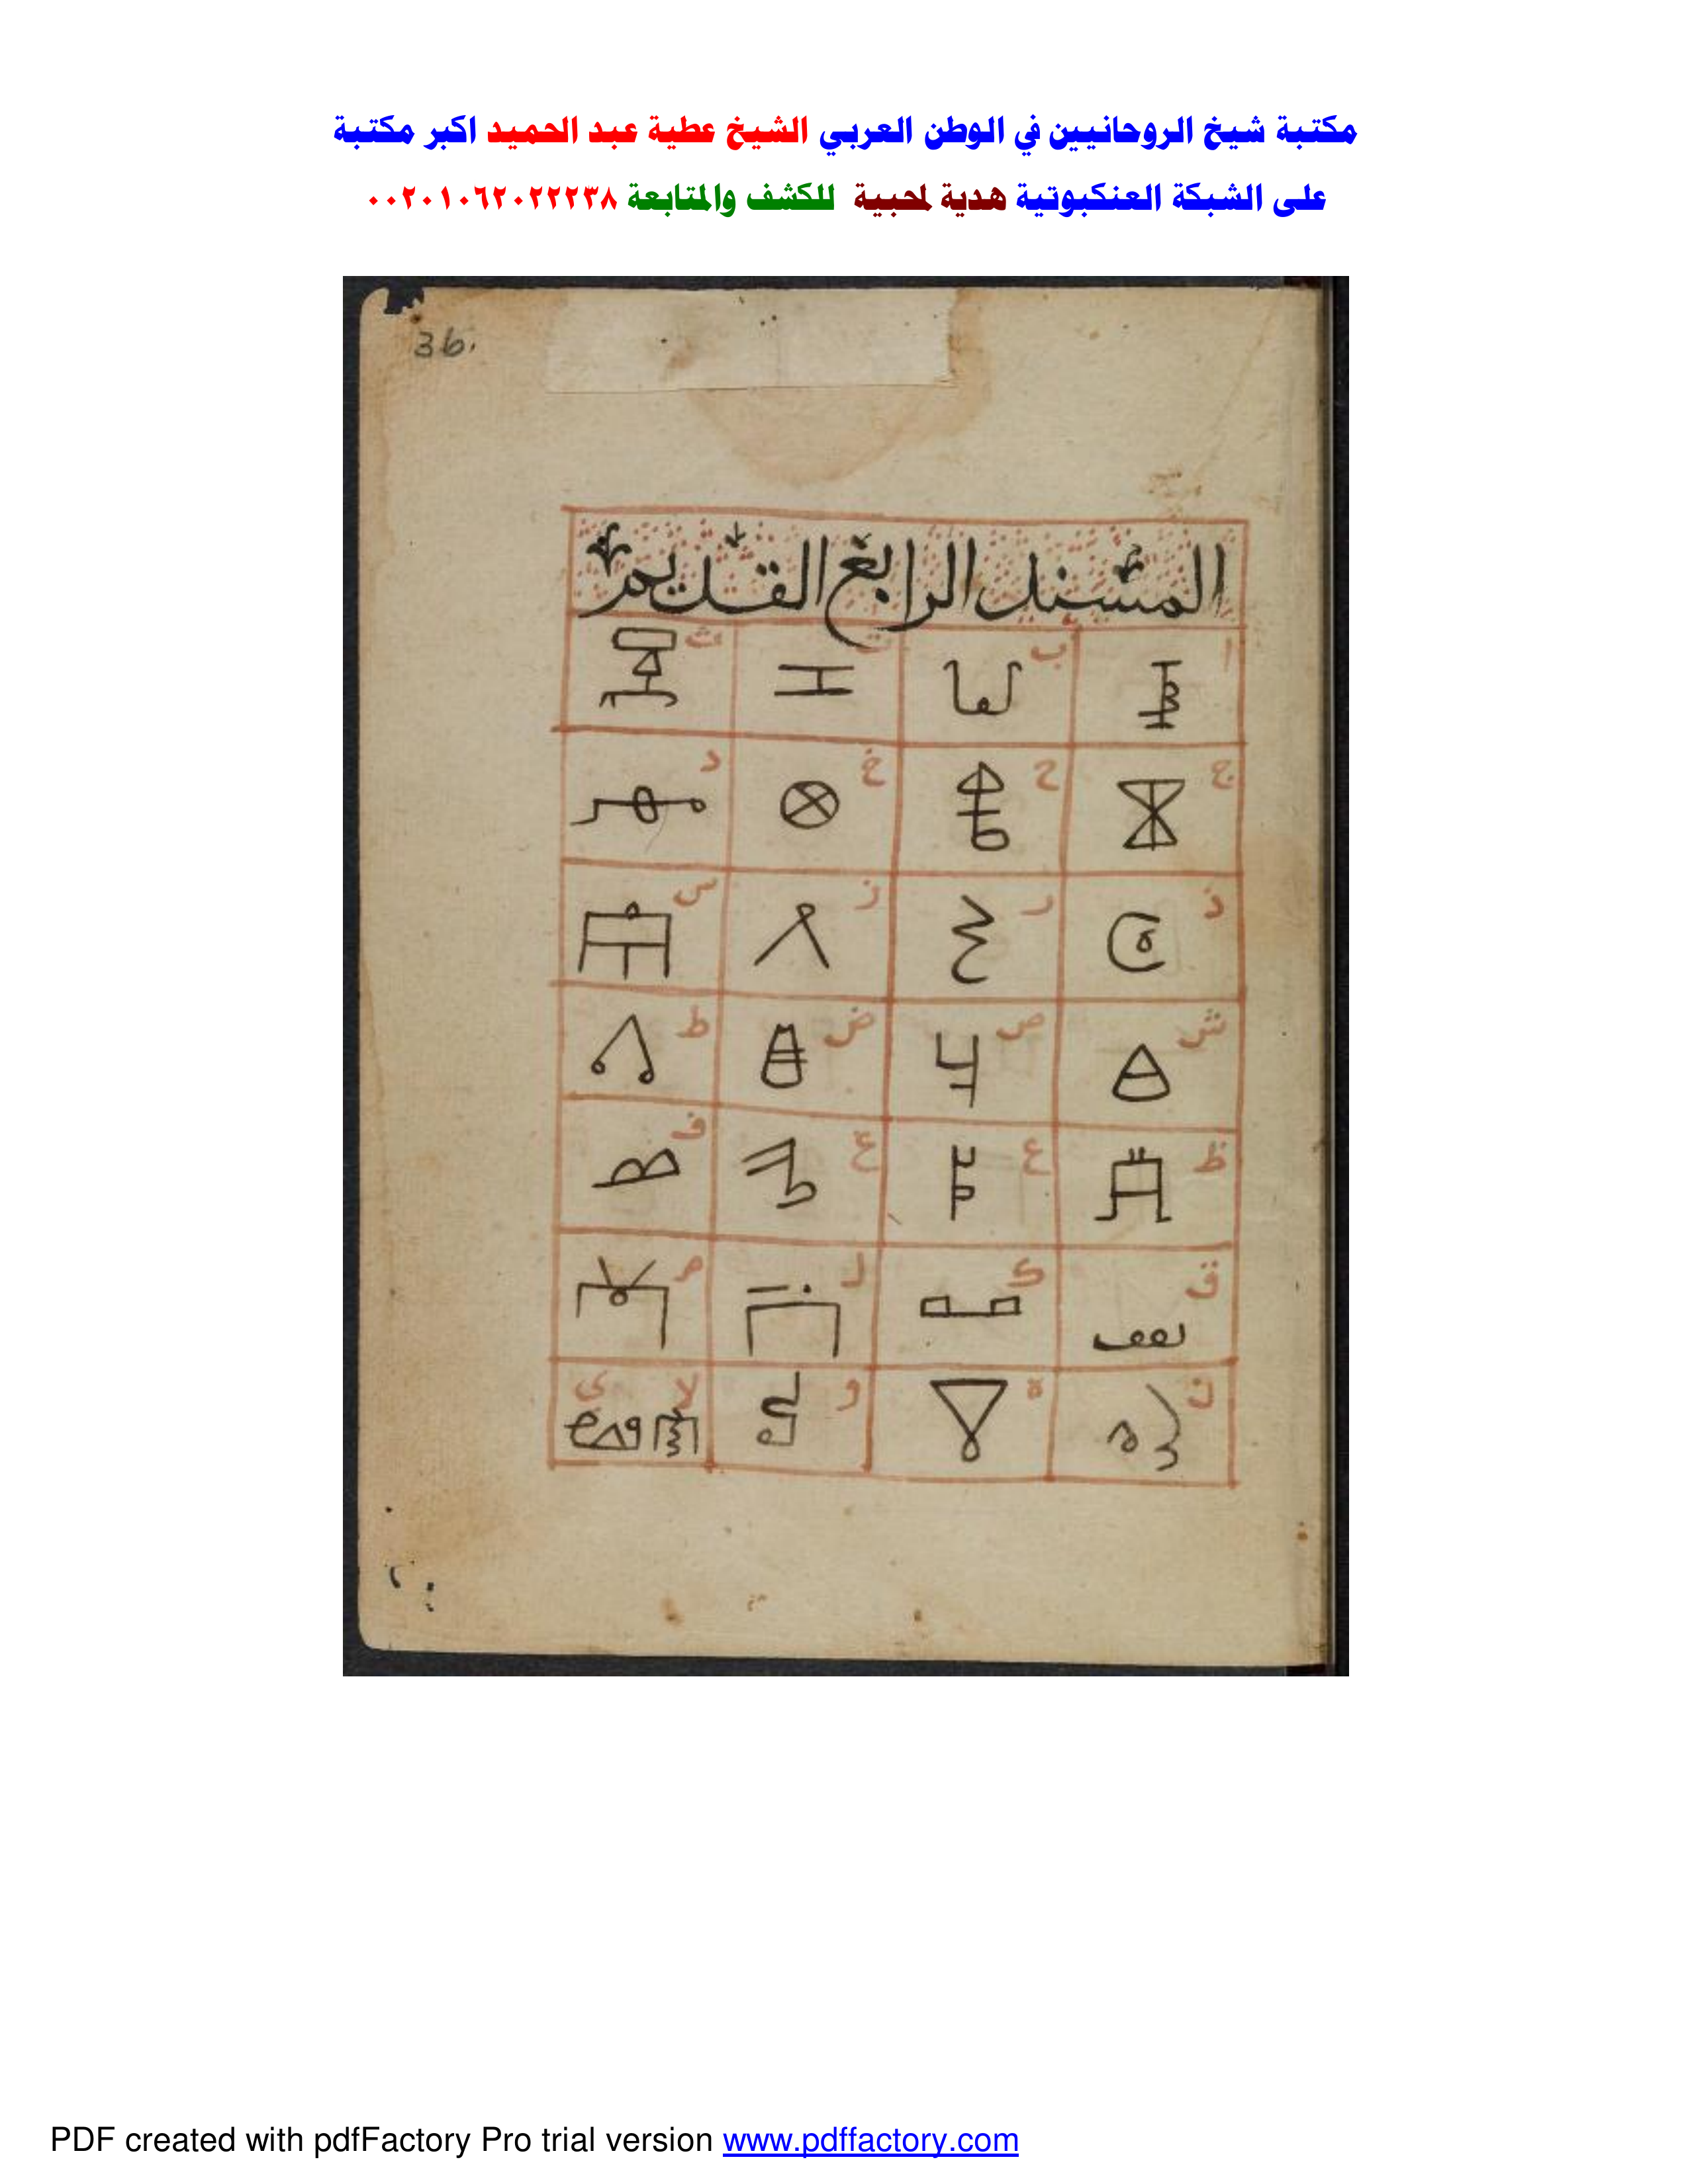 مكتبة شيخ الروحانيين في الوطن العربي الشيخ عطية عبد الحميد اكبر مكتبة
على الشبكة العنكبوتية هدية لمحبيه للكشف والمتابعة ٠٠٢٠١٠٦٢٠٢٢٢٣٨
36.
المسند الرابع القديم
ا ب ت ث
ج ح خ د
ذ ر ز س
ش ص ض ط
ظ ع غ ف
ق ك ل م
ن ه و لا ي
PDF created with pdfFactory Pro trial version www.pdffactory.com